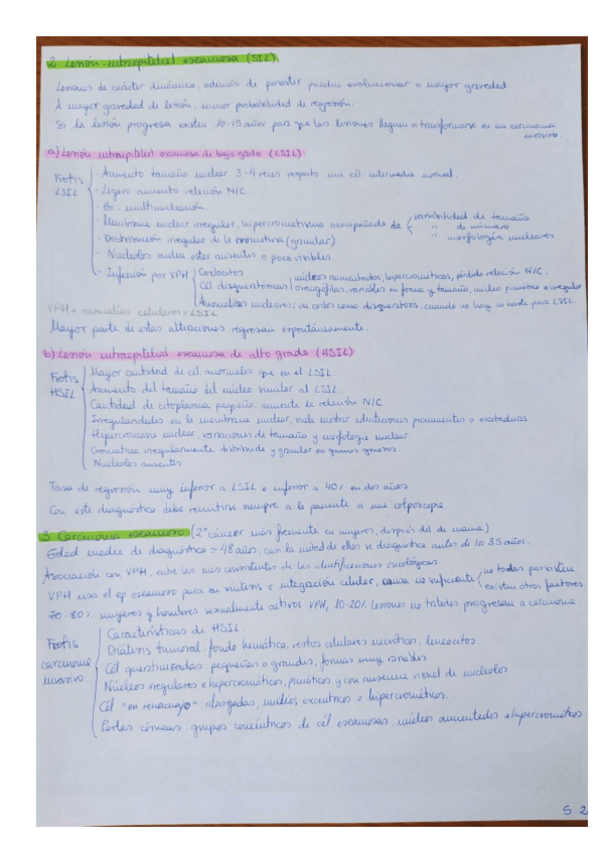 2. Lesión intraepitelial escamosa (SIL)
Lesiones de carácter dinámico, además de persistir pueden evolucionar a mayor gravedad.
A mayor gravedad de lesión, menor probabilidad de regresión.
Si la lesión progresa existen 10-15 años para que las lesiones lleguen a transformarse en un carcinoma
invasivo.
a) Lesión intraepitelial escamosa de bajo grado (LSIL)
Frotis LSIL
- Aumento tamaño nuclear 3-4 veces respecto una cél intermedia normal.
- Ligero aumento relación N/C.
- Bi - multinucleación.
- Membrana nuclear irregular, hipercromatismo acompañado de { variabilidad de tamaño
" de número
" morfología nucleares
- Distribución irregular de la cromatina (granular)
- Nucleolos suelen estar ausentes o poco visibles.
- Infección por VPH { Coilocitos
Cél disqueratósicas | núcleos aumentados, hipercromáticos, pérdida relación N/C.
orangófilas, variables en forma y tamaño, núcleo picnótico e irregular
Anomalías nucleares; ni coilos como disqueratosis, cuando no hay no basta para LSIL
VPH + anomalías celulares = LSIL
Mayor parte de estas alteraciones regresan espontáneamente.
b) Lesión intraepitelial escamosa de alto grado (HSIL)
Frotis HSIL
Mayor cantidad de cél anormales que en el LSIL.
Aumento del tamaño del núcleo similar al LSIL.
Cantidad de citoplasma pequeña, aumenta la relación N/C
Irregularidades en la membrana nuclear, suele mostrar identaciones prominentes o escotaduras.
Hipercromasia nuclear, variaciones de tamaño y morfología nuclear
Cromatina irregularmente distribuida y granular en grumos gruesos
Nucleolos ausentes
Tasa de regresión muy inferior a LSIL e inferior a 40% en dos años
Con este diagnóstico debe remitirse siempre a la paciente a una colposcopia.
3. Carcinoma escamoso (2º cáncer más frecuente en mujeres, después del de mama)
Edad media de diagnóstico ~ 48 años, casi la mitad de ellos se diagnostica antes de los 35 años.
Asociación con VPH, entre las más consistentes de las identificaciones oncológicas.
VPH usa el ep escamoso para su síntesis e integración celular, causa no suficiente { no todas persisten
existen otros factores.
70-80% mujeres y hombres sexualmente activos VPH, 10-20% lesiones no tratadas progresan a carcinoma.
Frotis carcinoma invasivo
Características de HSIL.
Diátesis tumoral: fondo hemático, restos celulares necróticos, leucocitos.
Cél queratinizadas pequeñas o grandes, formas muy variables
Núcleos irregulares e hipercromáticos, picnóticos y con ausencia visual de nucleolos
Cél "en renacuajo": alargadas, núcleos excéntricos e hipercromáticos.
Perlas córneas: grupos concéntricos de cél escamosas, núcleos aumentados e hipercromáticos
5.2